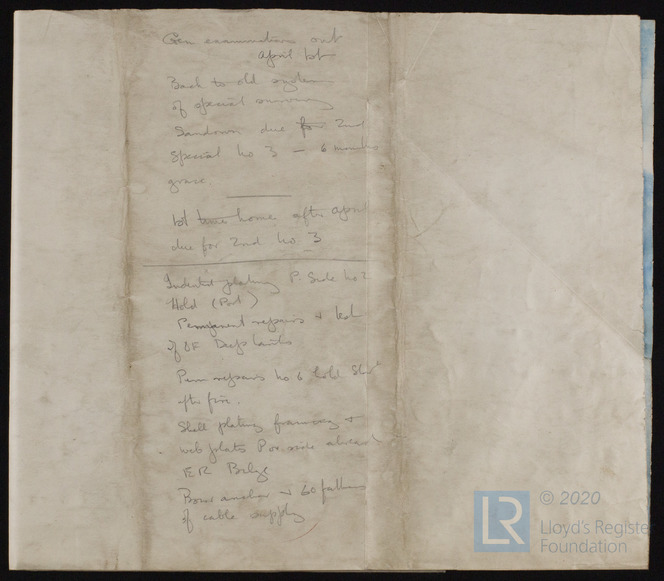 Con examination out
April 1st
Back to old system
of special survey
Sandown due for 2nd
Special No 3 - 6 months
grace.
1st time home after April
due for 2nd No 3
Indented plating P. Side No 2
Hold (Port)
Permanent repairs + test
of OF Deep tanks
Perm repairs No 6 hold
after fire.
Shell plating framing +
web plates side
ER Bilge
Bower anchor + 60 fathoms
of cable supply
LR
© 2020
Lloyd's Registe
Foundation